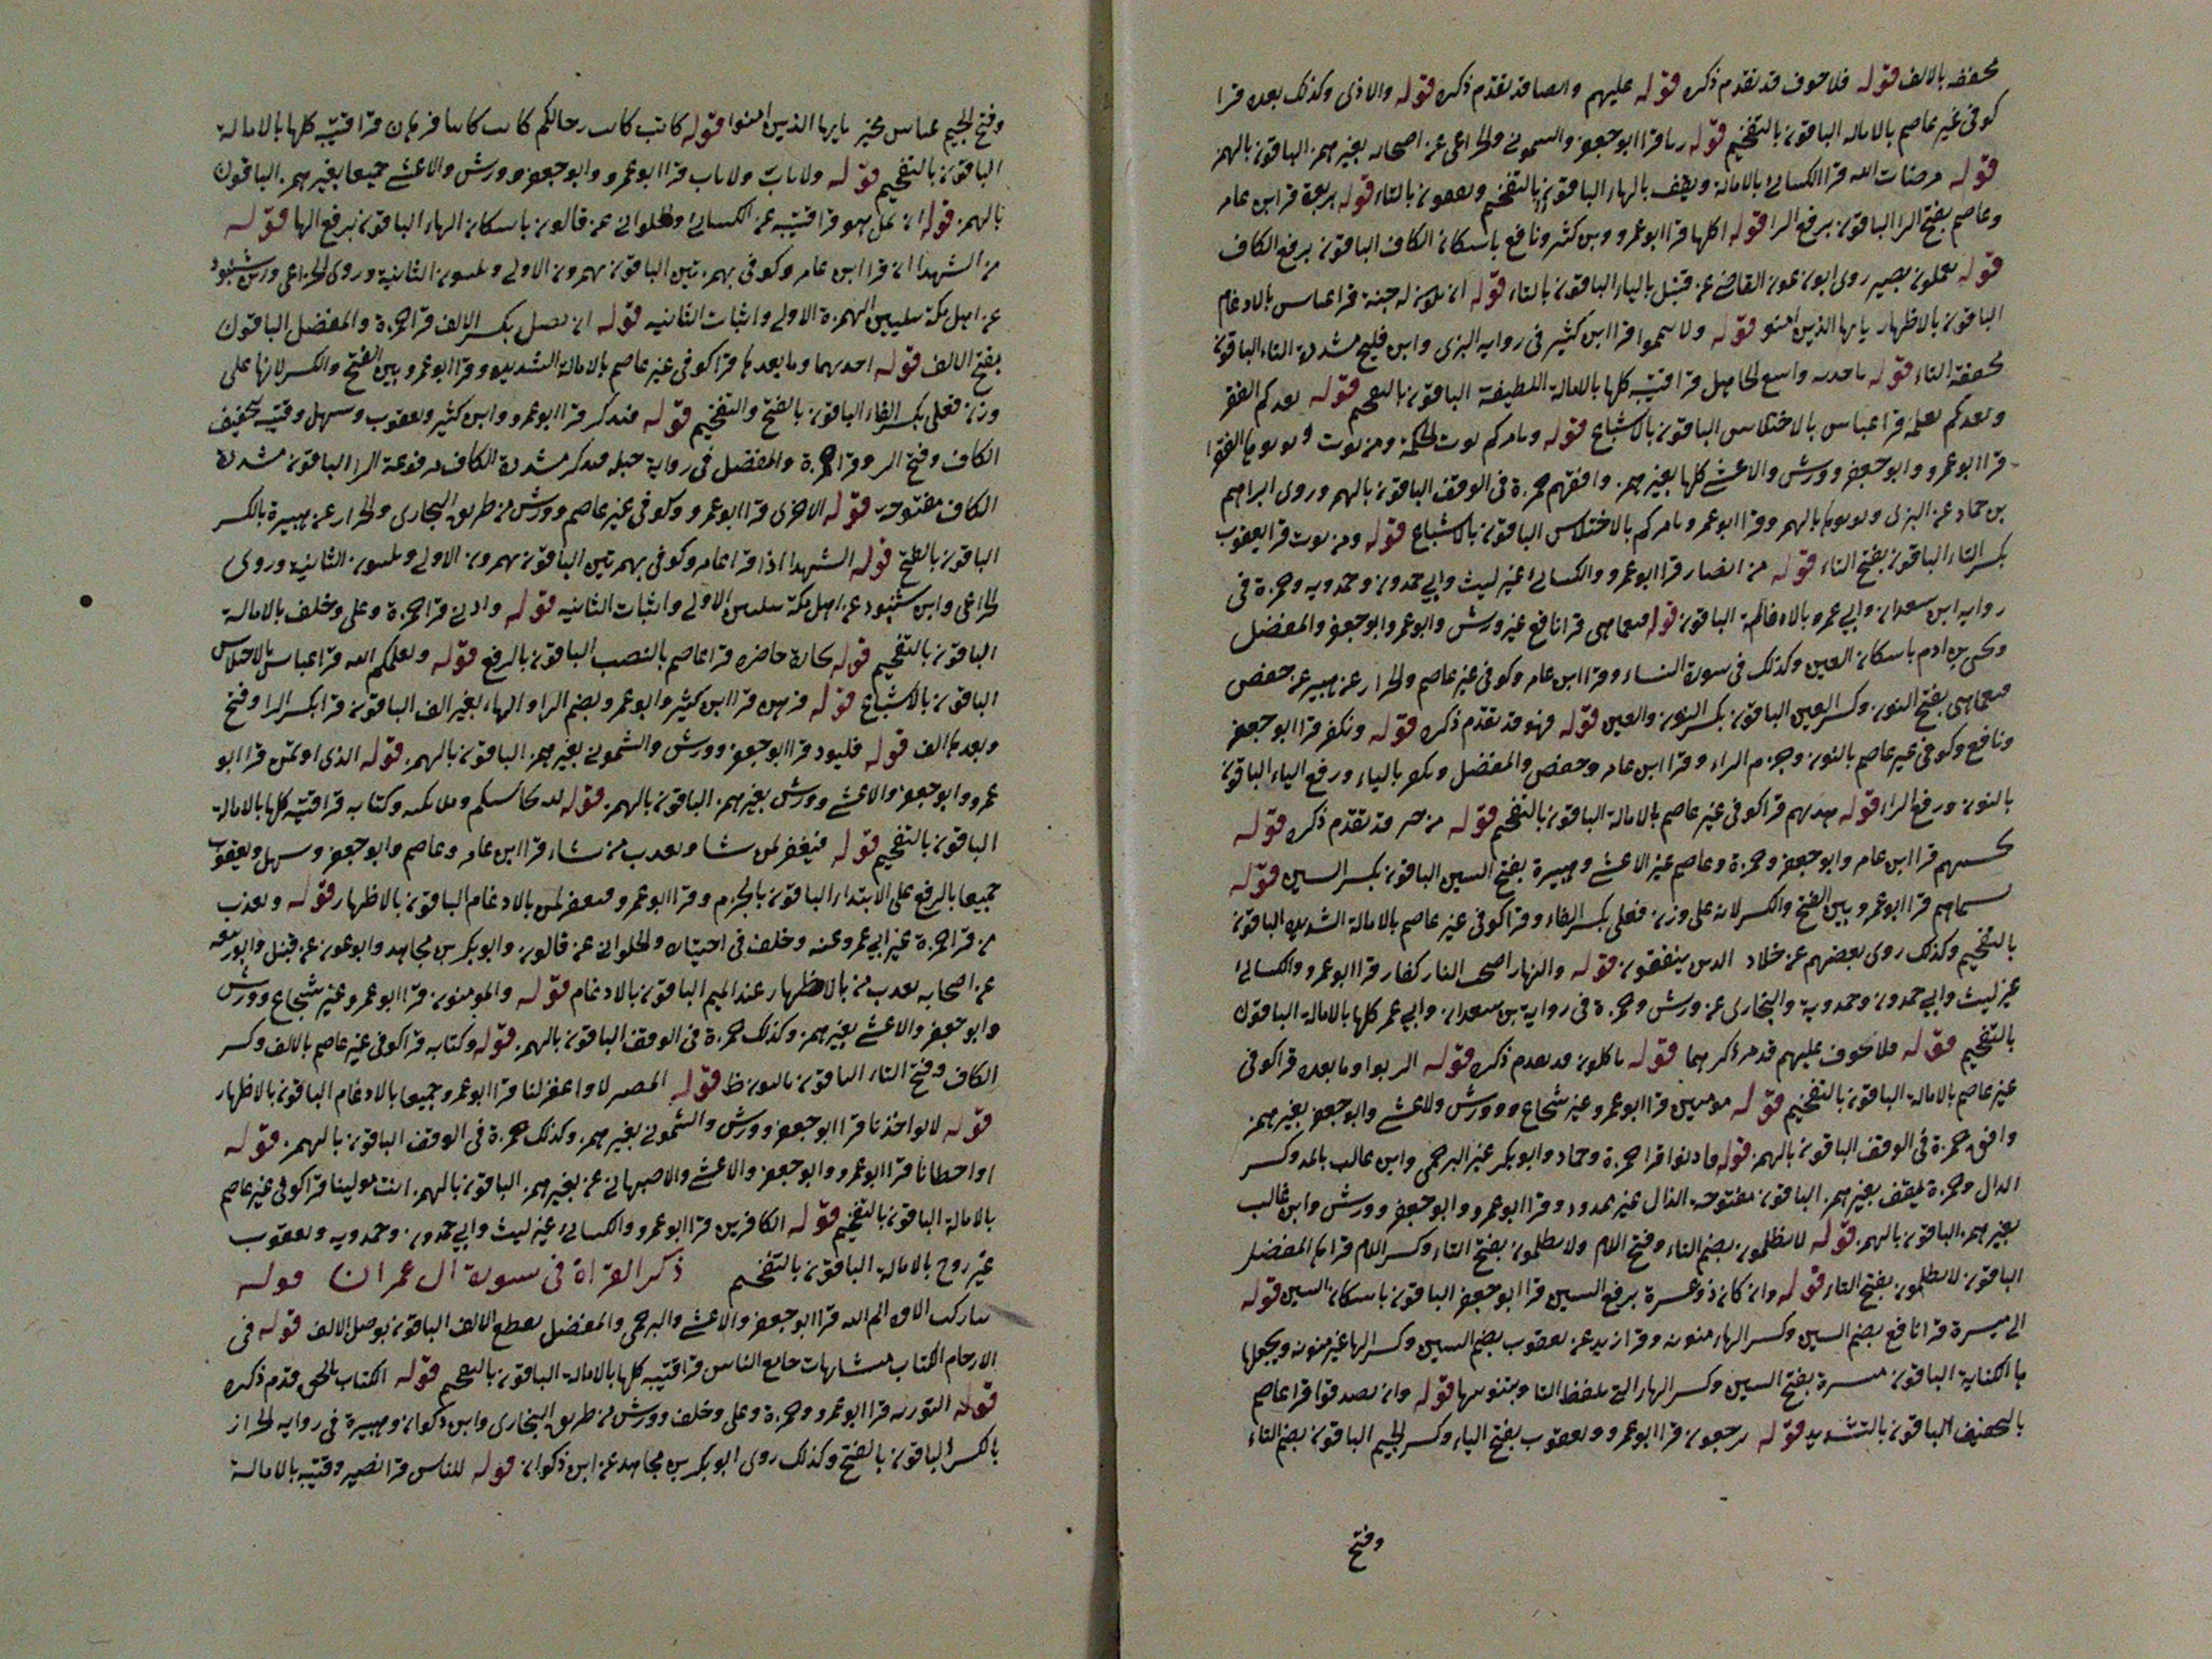 محففه بالالف قوله فلا حوف قد تقدم ذكره قوله عليهم والصا قد تقدم ذكره قوله والاذى وكذلك بعده قرا
كوفى غير عاصم بالاماله الباقون بالتفخيم قوله رىا قرا ابو جعفر والسمونى والخزاعى عن اصحابه بغير همز الباقون بالهمز
قوله مرضات الله قرا الكسائى بالامالة ويقف بالهاء الباقون بالتفخيم ويقفون بالتاء قوله بربوة قرا ابن عامر
وعاصم بفتح الرا الباقون برفع الرا قوله اكلها قرا ابو عمرو وبن كثير ونافع باسكان الكاف الباقون برفع الكاف
قوله تعملون بصير روى ابو عون القاضى عن قنبل بالياء الباقون بالتاء قوله ان تكون له جنة قرا عباس بالادغام
الباقون بالاظهار يايها الذين امنو قوله ولا تيمموا قرا ابن كثير فى روايه البزى وابن فليح مشددة التاء الباقون
محففة التاء قوله باخذيه واسع الجاهل قرا قتيبه كلها بالامالة اللطيفة الباقون بالتفخيم قوله يعدكم الفقر
ويعدكم يعلمه قرا عباس بالاختلاس الباقون بالاشباع قوله ويامركم يوت الحكمة ومن يوت وتوتوها الفقرا
قرا ابو عمرو وابو جعفر وورش والاعشى كلها بغير همز وافقهم حمزة فى الوقف الباقون بالهمز وروى ابراهيم
بن حماد عن البزى وتوتوها بالهمز وقرا ابو عمرو يامركم بالاختلاس الباقون بالاشباع قوله ومن يوت قرا يعقوب
بكسر التاء الباقون بفتح التاء قوله من انصار قرا ابو عمرو والكسائى غير ليث وابى حمدون وحمدويه وحمزة فى
روايه ابن سعدان وابى عمر بالاماله الباقون قوله فنعما هى قرا نافع غير ورش وابو عمرو وابو جعفر والمفضل
ويحيى بن ادم باسكان العين وكذلك فى سورة النساء وقرا ابن عامر وكوفى غير عاصم والخزاز عن هبيره عن حفص
فنعما هى بفتح النون وكسر العين الباقون بكسر النون والعين قوله فهو قد تقدم ذكره قوله ونكفر قرا ابو جعفر
ونافع وكوفى غير عاصم بالنون وجزم الراء وقرا ابن عامر وحفص والمفضل ويكفر بالياء ورفع الياء الباقون
بالنون ورفع الراء قوله هديهم قرا كوفى غير عاصم بالامالة الباقون بالتفخيم قوله من خير قد تقدم ذكره قوله
يحسبهم قرا ابن عامر وابو جعفر وحمزة وعاصم غير الاعشى وهبيرة بفتح السين الباقون بكسر السين قوله
بسيماهم قرا ابو عمرو بين الفتح والكسر لانه على وزن فعلى بكسر الفاء وقرا كوفى غير عاصم بالامالة الشديده الباقون
بالتفخيم وكذلك روى بعضهم عن خلاد الذين ينفقون قوله والنهار اصحب النار كفار قرا ابو عمرو والكسائى
غير ليث وابى حمدون وحمدوية والبخارى عن ورش وحمزة فى رواية بن سعدان وابى عمر كلها بالامالة الباقون
بالتفخيم قوله فلا خوف عليهم قد مر ذكرهما قوله ياكلون قد تقدم ذكره قوله الربوا وما بعده قرا كوفى
غير عاصم بالامالة الباقون بالتفخيم قوله مومنين قرا ابو عمرو غير شجاع وورش والاعشى وابو جعفر بغير همز
وافق حمزة فى الوقف الباقون بالهمز قوله فاذنوا قرا حمزة وحماد وابو بكر غير البرجمى وابن غالب بالمد وكسر
الدال وحمزة يقف بغير همز الباقون مفتوحة الذال غير ممدود وقرا ابو عمرو وابو جعفر وورش وابن غالب
بغير همز الباقون بالهمز قوله لا تظلمون بضم التاء وفتح اللام ولا تظلمون بفتح التاء وكسر اللام قراها المفضل
الباقون لا تظلمون بفتح التاء قوله وان كان ذو عسرة برفع السين قرا ابو جعفر الباقون باسكان السين قوله
الى ميسرة قرا نافع بضم السين وكسر الهاء منونه وقرا زيد عن يعقوب بضم السين وكسر الها غير منونه ويجعلها
ها الكناية الباقون ميسرة بفتح السين وكسر الهاء التى تلفظ التا وبتنوينها قوله وان تصدقوا قرا عاصم
بالتخفيف الباقون بالتشديد قوله ترجعون قرا ابو عمرو ويعقوب بفتح الياء وكسر الجيم الباقون بضم التاء
وفتح
وفتح الجيم عباس مخير يايها الذين امنوا قوله كاتب كاتب رجالكم كاتب كاتبا فرهان قرا قتيبه كلها بالامالة
الباقون بالتفخيم قوله ولا ياب ولا ياب قرا ابو عمرو وابو جعفر وورش والاعشى جميعا بغير همز الباقون
بالهمز قوله ان يمل هو قرا قتيبه عن الكسائى والحلوانى عن قالون باسكان الهاء الباقون برفع الها قوله
من الشهدا ان قرا ابن عامر وكوفى بهمزتين الباقون يهمزون الاولى ويلينون الثانية وروى الخزاعى وابن شنبوذ
عن اهل مكة بتليين الهمزة الاولى واثبات الثانيه قوله ان تضل بكسر الالف قرا حمزة والمفضل الباقون
بفتح الالف قوله احديهما وما بعدها قرا كوفى غير عاصم بالامالة الشديده وقرا ابو عمرو بين الفتح والكسر لانها على
وزن فعلى بكسر الفاء الباقون بالفتح والتفخيم قوله فتذكر قرا ابو عمرو وابن كثير ويعقوب وسهل وقتيبه بتخفيف
الكاف وفتح الر وقرا حمزة والمفضل فى رواية جبله فتذكر مشددة الكاف مرفوعة الرا الباقون مشددة
الكاف مفتوحه قوله الاخرى قرا ابو عمرو وكوفى غير عاصم وورش من طريق البخارى والخزاز عن هبيرة بالكسر
الباقون بالفتح قوله الشهدا اذا قرا عامر وكوفى بهمزتين الباقون يهمزون الاولى ويلينون الثانيه وروى
الخزاعى وابن شنبوذ عن اهل مكة بتليين الاولى واثبات الثانيه قوله وادنى قرا حمزة وعلى وخلف بالامالة
الباقون بالتفخيم قوله تجارة حاضره قرا عاصم بالنصب الباقون بالرفع قوله ويعلمكم الله قرا عباس بالاختلاس
الباقون بالاشباع قوله فرهن قرا ابن كثير وابو عمرو بضم الرا والهاء بغير الف الباقون قرا بكسر الرا وفتح
وبعدها الف قوله فليود قرا ابو جعفر وورش والشمونى بغير همز الباقون بالهمز قوله الذى اوتمن قرا ابو
عمرو وابو جعفر والاعشى وورش بغير همز الباقون بالهمز قوله لله يحاسبكم وملائكته وكتابه قرا قتيبه كلها بالامالة
الباقون بالتفخيم قوله فيغفر لمن يشا ويعذب من يشاء قرا ابن عامر وعاصم وابو جعفر وسهل ويعقوب
جميعا بالرفع على الابتداء الباقون بالجزم وقرا ابو عمرو فيغفر لمن بالادغام الباقون بالاظهار قوله ويعذب
من قرا حمزة غير ابى عمرو عنه وخلف فى اختياره والحلوانى عن قالون وابو بكر بن مجاهد وابو عون عن قنبل وابو ربيعه
عن اصحابه يعذب من بالاظهار عند الميم الباقون بالادغام قوله والمومنون قرا ابو عمرو غير شجاع وورش
وابو جعفر والاعشى بغير همز وكذلك حمزة فى الوقف الباقون بالهمز قوله وكتابه قرا كوفى غير عاصم بالالف وكسر
الكاف وفتح التاء الباقون قوله المصير لا واغفر لنا قرا ابو عمرو جميعا بالادغام الباقون بالاظهار
قوله لا تواخذنا قرا ابو جعفر وورش والشمونى بغير همز وكذلك حمزة فى الوقف الباقون بالهمز قوله
او اخطانا قرا ابو عمرو وابو جعفر والاعشى والاصبهانى عن بغير همز الباقون بالهمز انت مولينا قرا كوفى غير عاصم
بالامالة الباقون بالتفخيم قوله الكافرين قرا ابو عمرو والكسائى غير ليث وابى حمدون وحمدويه ويعقوب
غير روح بالامالة الباقون بالتفخيم ذكر القراة فى سورة ال عمران قوله
الم الله قرا ابو جعفر والاعشى والبرجمى والمفضل بقطع الالف الباقون بوصل الالف قوله فى
الارحام الكتاب متشابهات جامع الناس قرا قتيبه كلها بالامالة الباقون بالتفخيم قوله الكتاب بالحق قدم ذكره
قوله التوريه قرا ابو عمرو وحمزة وعلى وخلف وورش من طريق البخارى وابن ذكوان وهبيرة فى روايه الخزاز
بالكسر الباقون بالفتح وكذلك روى ابو بكر بن مجاهد عن ابن ذكوان قوله للناس قرا نصير وقتيبه بالامالة